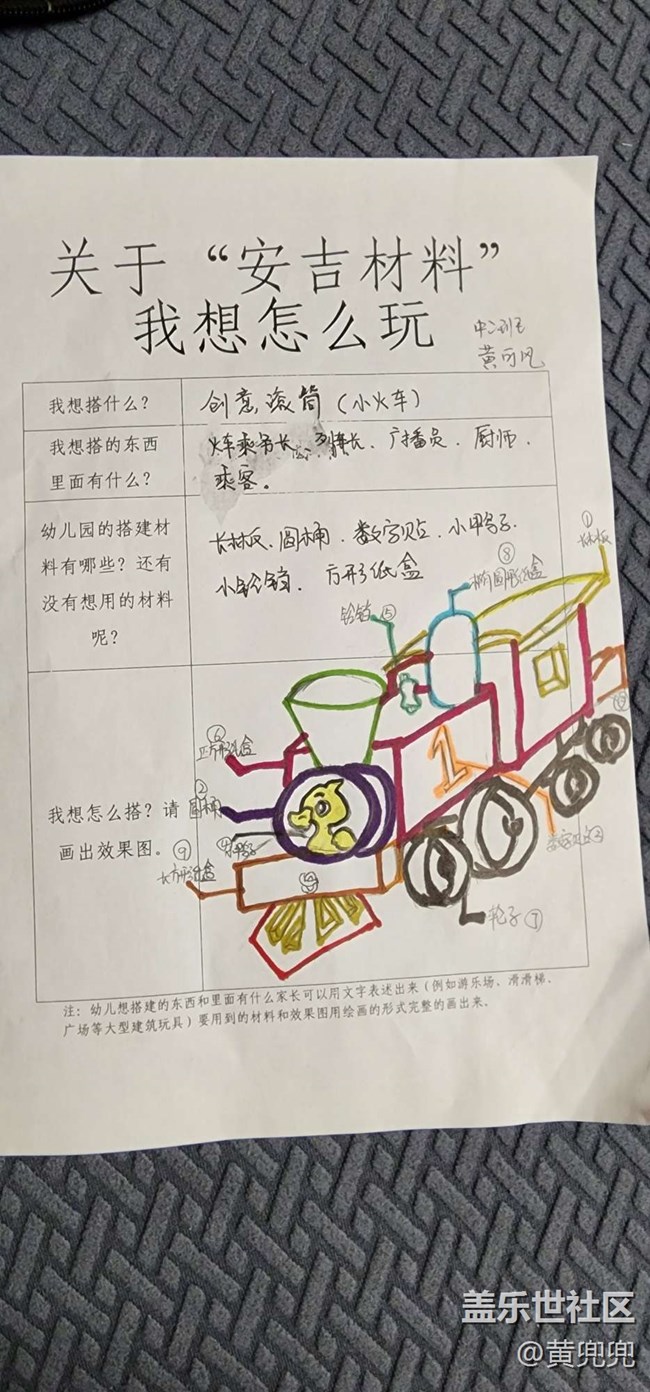 关于“安吉材料”
我想怎么玩
中二班
黄可凡
我想搭什么？
创意滚筒（小火车）
我想搭的东西
里面有什么？
火车乘务长、列车长、广播员、厨师、
乘客。
幼儿园的搭建材
料有哪些？还有
没有想用的材料
呢？
长木板、圆桶、数字贴、小鸭子、
小铃铛、方形纸盒
①
长木板
⑧
椭圆形纸盒
铃铛⑤
⑥
正方形纸盒
②
圆桶
我想怎么搭？请
画出效果图。
④小鸭子
⑨
长方形纸盒
1
⑩
数字贴③
轮子⑦
注：幼儿想搭建的东西和里面有什么家长可以用文字表述出来（例如游乐场、滑滑梯、
广场等大型建筑玩具）要用到的材料和效果图用绘画的形式完整的画出来。
盖乐世社区
@黄兜兜